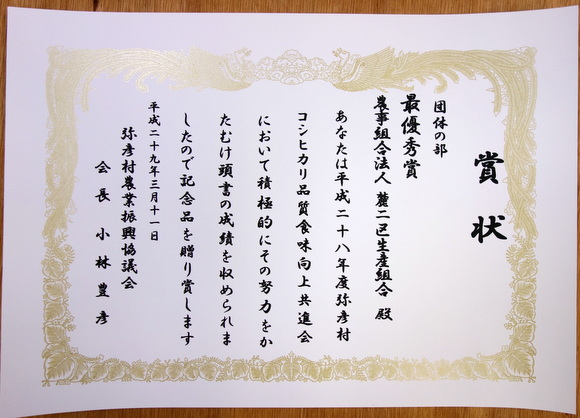 賞状
団体の部
最優秀賞
農事組合法人 麓二区生産組合 殿
あなたは平成二十八年度弥彦村
コシヒカリ品質食味向上共進会
において積極的にその努力をか
たむけ頭書の成績を収められま
したので記念品を贈り賞します
平成二十九年三月十一日
弥彦村農業振興協議会
会長 小林豊彦